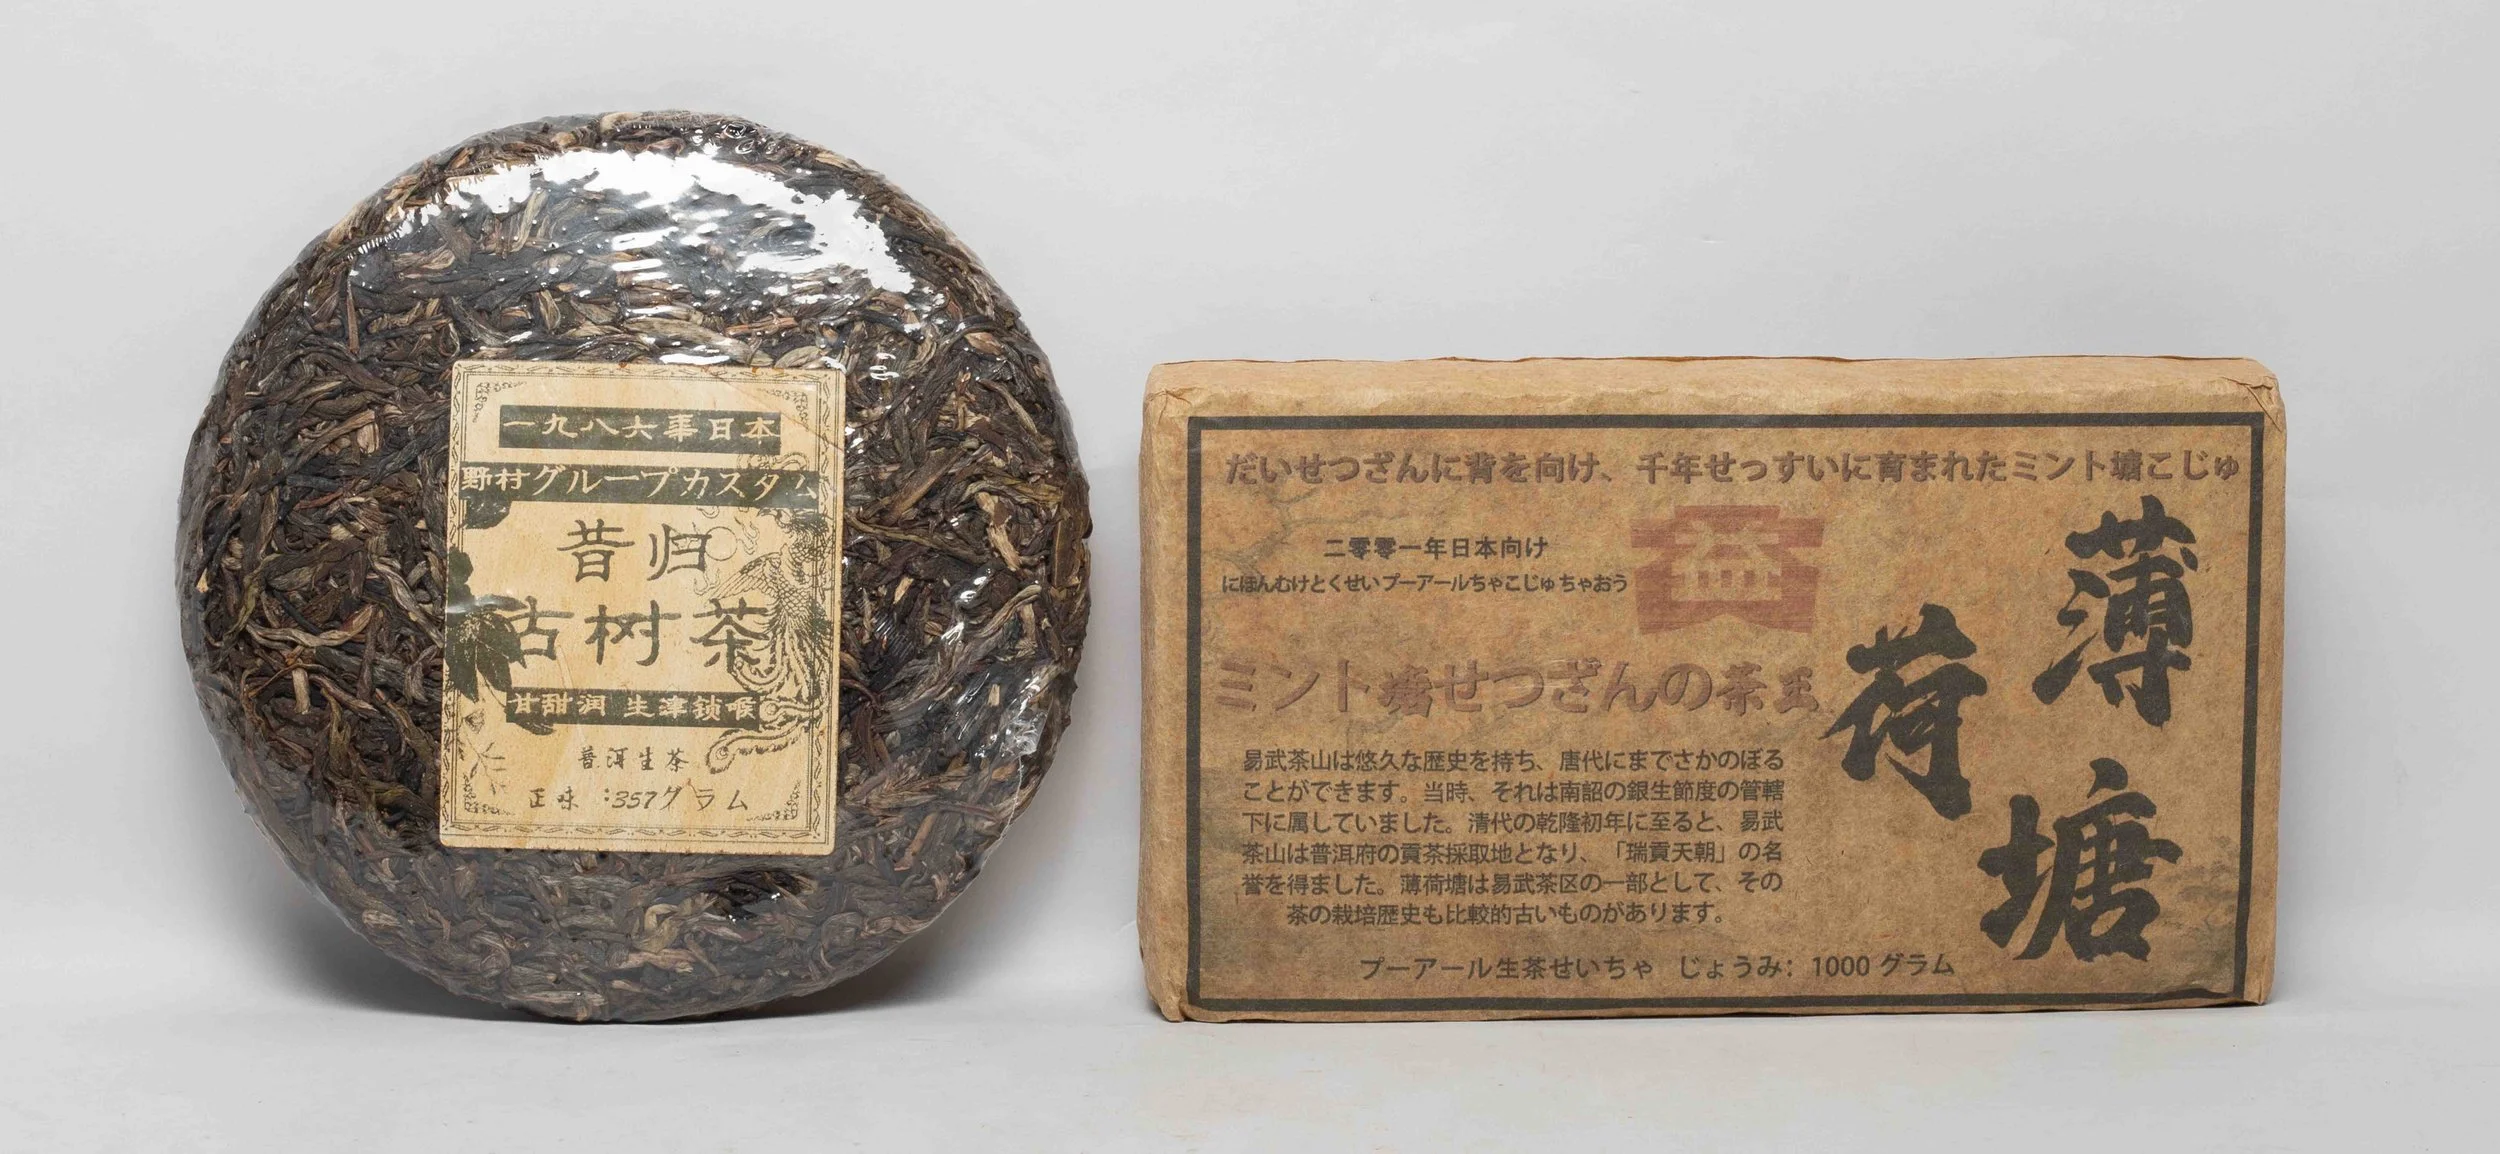 一九八六年日本
野村グループカスタム
昔归
古树茶
甘甜润 生津锁喉
普洱生茶
正味:357グラム
だいせつざんに背を向け、千年せっすいに育まれたミント塘こじゅ
二零零一年日本向け
にほんむけとくせいプーアールちゃこじゅちゃおう
益
ミント塘せつざんの茶王
薄荷塘
易武茶山は悠久な歴史を持ち、唐代にまでさかのぼる
ことができます。当時、それは南詔の銀生節度の管轄
下に属していました。清代の乾隆初年に至ると、易武
茶山は普洱府の貢茶採取地となり、「瑞貢天朝」の名
誉を得ました。薄荷塘は易武茶区の一部として、その
茶の栽培歴史も比較的古いものがあります。
プーアール生茶せいちゃ じょうみ: 1000 グラム